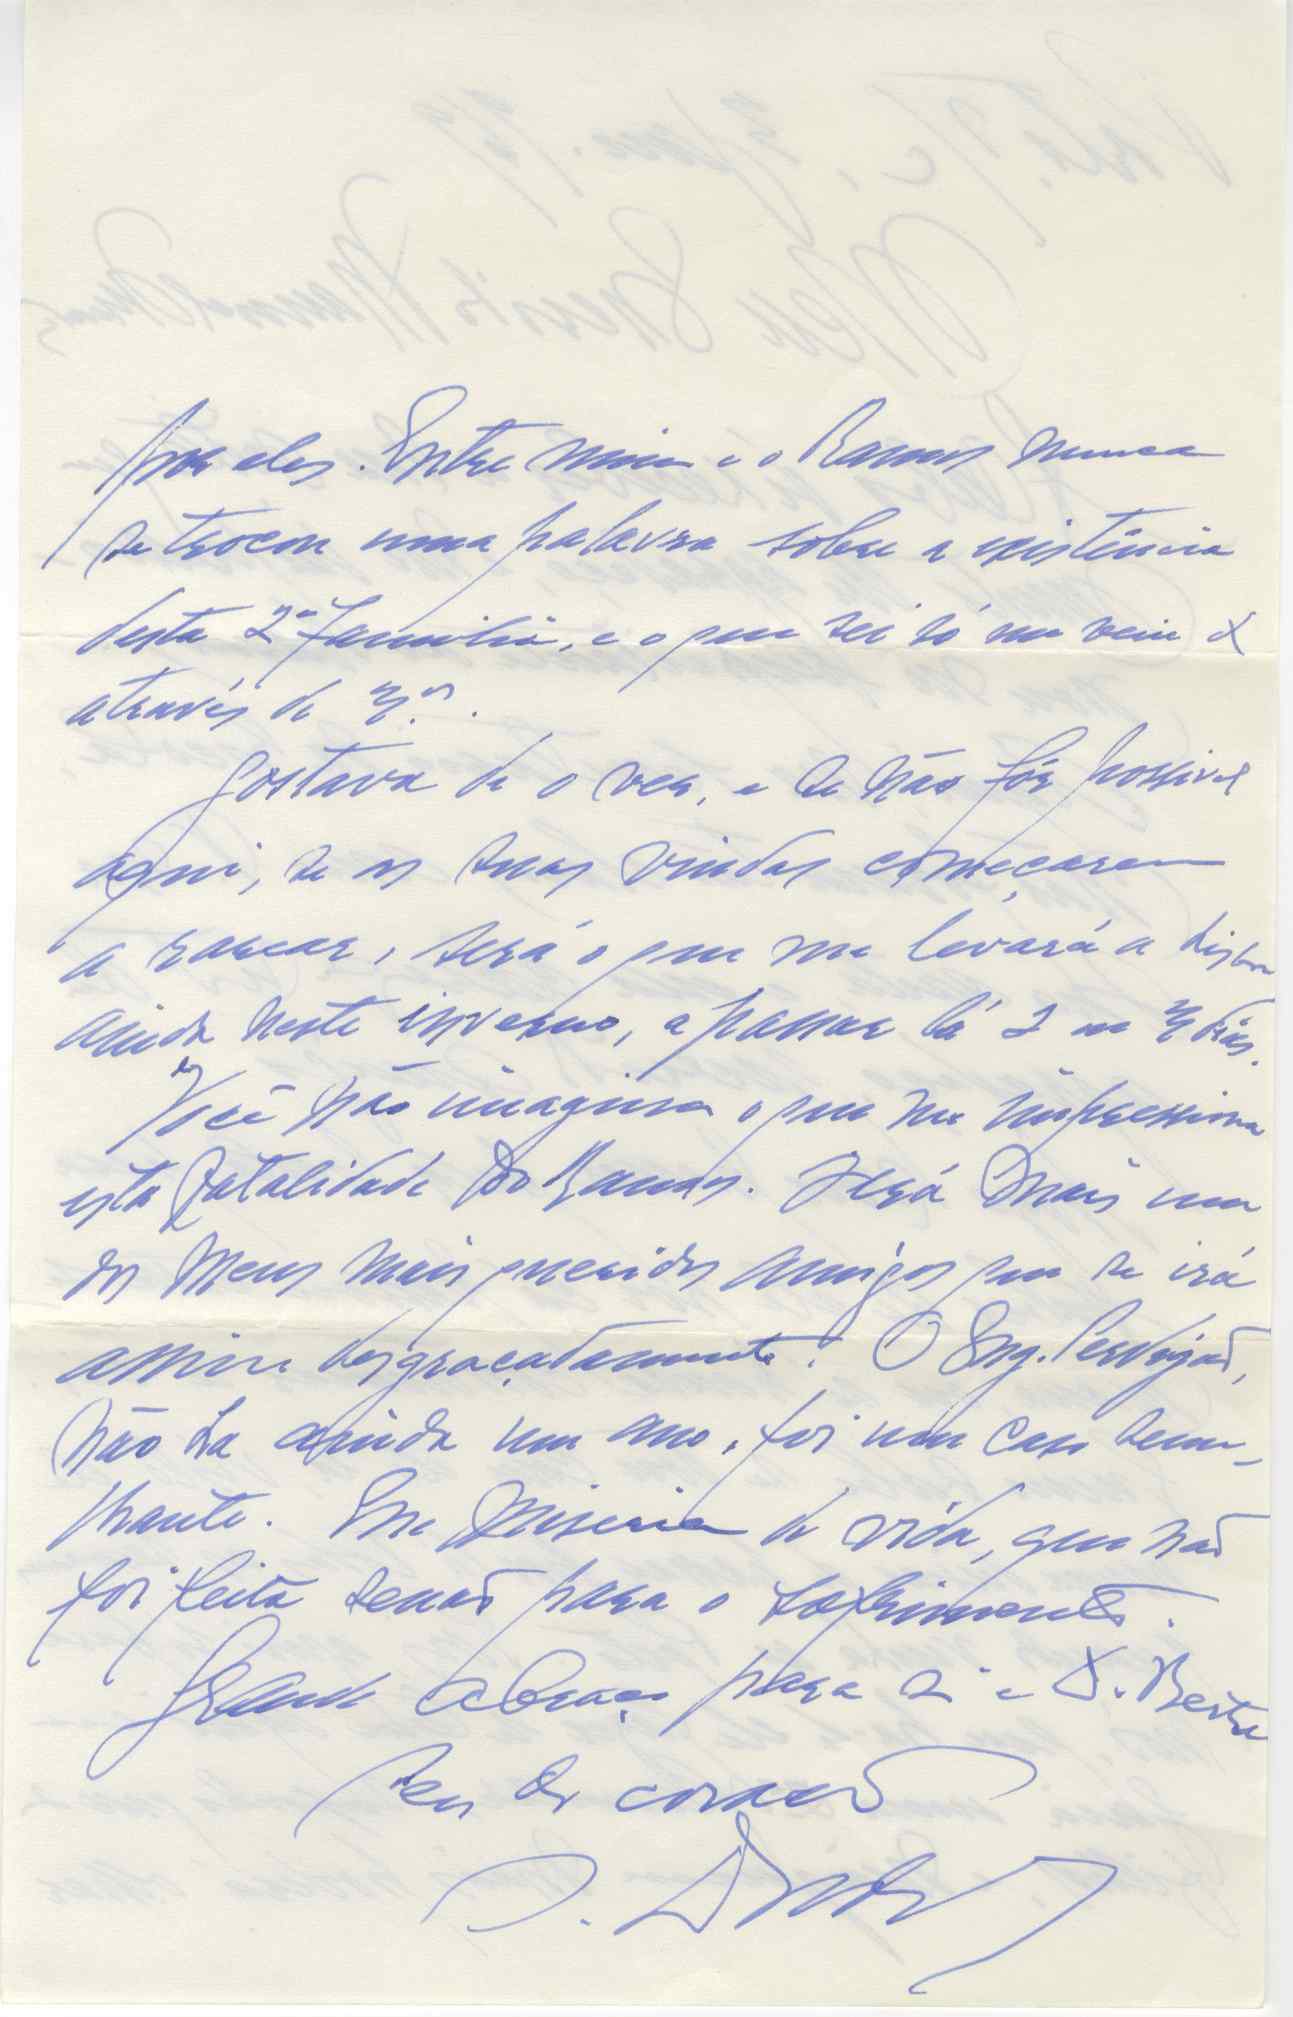 por eles. Entre mim e o Ramos nunca
se trocou uma palavra sobre a existência
desta 2ª família, e o que sei só me veio
através de 3.ºs.
Gostava de o ver, e se não fôr possivel
aqui, se as suas vindas começarem
a rarear, será o que me levará a Lisboa
ainda neste inverno, a passar lá 2 ou 3 dias.
Você não imagina o que me impressiona
esta fatalidade do Ramos. Será mais um
dos meus mais queridos amigos que se irá
assim desgraçadamente! O Eng. Perdigão,
não há ainda um ano, foi um caso seme-
lhante. Que miseria de vida, que não
foi feita senão para o sofrimento.
Grande abraço para si e D. Berta
seu do coração